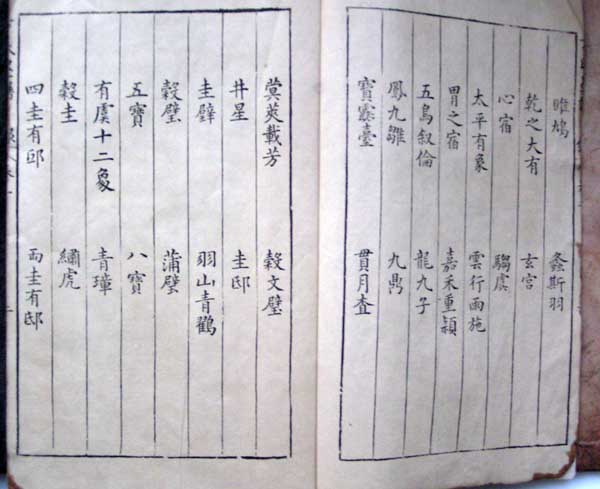 雎鳩 螽斯羽
乾之大有 玄宮
心宿 騶虞
太平有象 雲行雨施
胃之宿 嘉禾重穎
五鳥叙倫 龍九子
鳳九雛 九鼎
寶露臺 貫月查
蓂莢載芳 穀文璧
井星 圭邸
圭璧 羽山青鸛
穀璧 蒲璧
五寶 八寶
有虞十二象 青璋
穀圭 繡虎
四圭有邸 两圭有邸